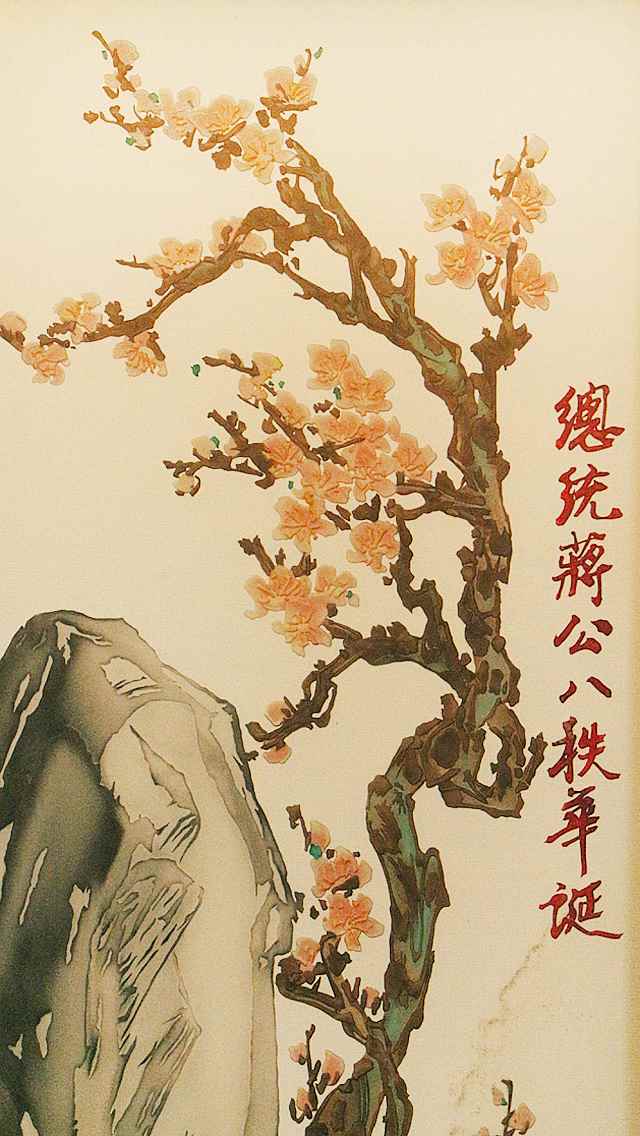 總統蔣公八秩華誕